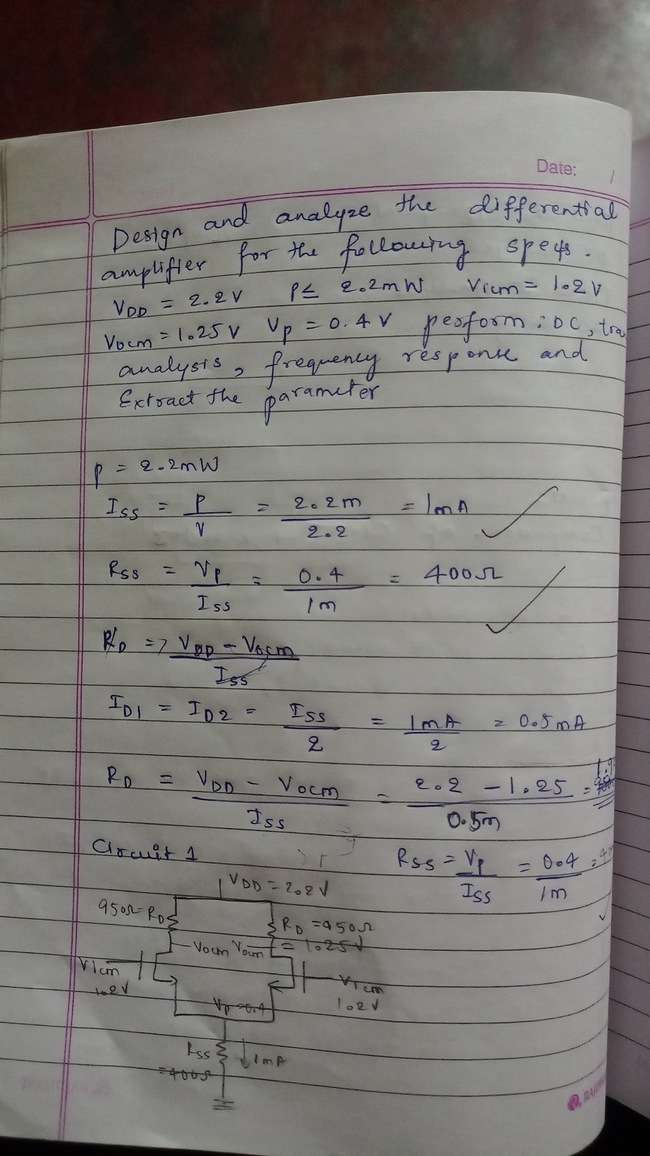 Date:
Design and analyze the differential
amplifier for the following specs.
VDD = 2.2V P≤ 2.2mW VICM = 1.2V
VOCM = 1.25V Vp = 0.4V perform : DC, tra
analysis, frequency response and
Extract the parameter
P = 2.2mW
ISS = P/V = 2.2m/2.2 = 1mA
RSS = Vp/ISS = 0.4/1m = 400Ω
RD => VDD - VOCM/ISS
ID1 = ID2 = ISS/2 = 1mA/2 = 0.5mA
RD = VDD - VOCM/ISS = 2.2 - 1.25/0.5m =
Circuit 1 RSS = Vp/ISS = 0.4/1m =
VDD = 2.2V
950Ω = RD RD = 950Ω
Vocm Vocm = 1.25V
VICM VICM
1.2V 1.2V
Vp = 0.4
RSS 1mA
= 400Ω